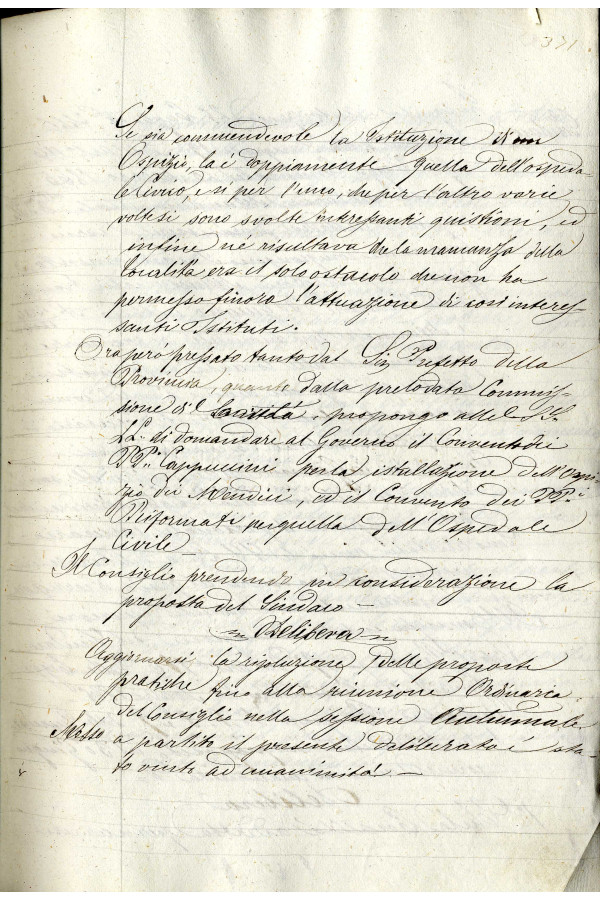 371
Se sia commendevole la Istituzione di un
Ospizio, la è doppiamente quella dell'ospeda-
le Civico, e si per l'uno, che per l'altro varie
volte si sono svolte interessanti quistioni, ed
infine né risultava che la mamanza della
località era il solo ostacolo che non ha
permesso finora l'attuazione di così interes-
santi Istituti.
Ora però pressato tanto dal Sig. Prefetto della
Provincia, quanto dalla prelodata Commis-
sione di propongo alle SS.
LL. di domandare al Governo il Convento dei
PP.i Cappuccini per la istallazione dell'Ospi-
zio dei Mendici, ed il Convento dei PP.i
Riformati per quella dell'Ospedale
Civile
Il Consiglio prendendo in considerazione la
proposta del Sindaco —
Delibera
Aggiornarsi la risoluzione delle proposte
pratiche fino alla riunione Ordinaria
del Consiglio nella sessione Autunnale
Messo a partito il presente deliberato è sta-
to vinto ad unanimità. —